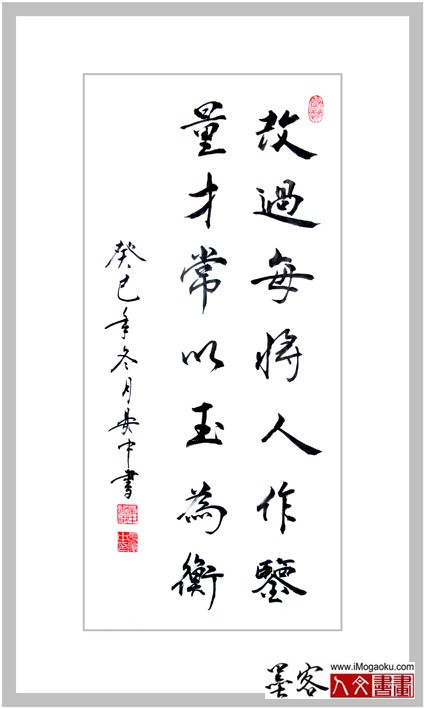 故過每將人作鑒
量才常以玉為衡
癸巳年冬月中書
墨客
www.iMogaoku.com
人文書畫